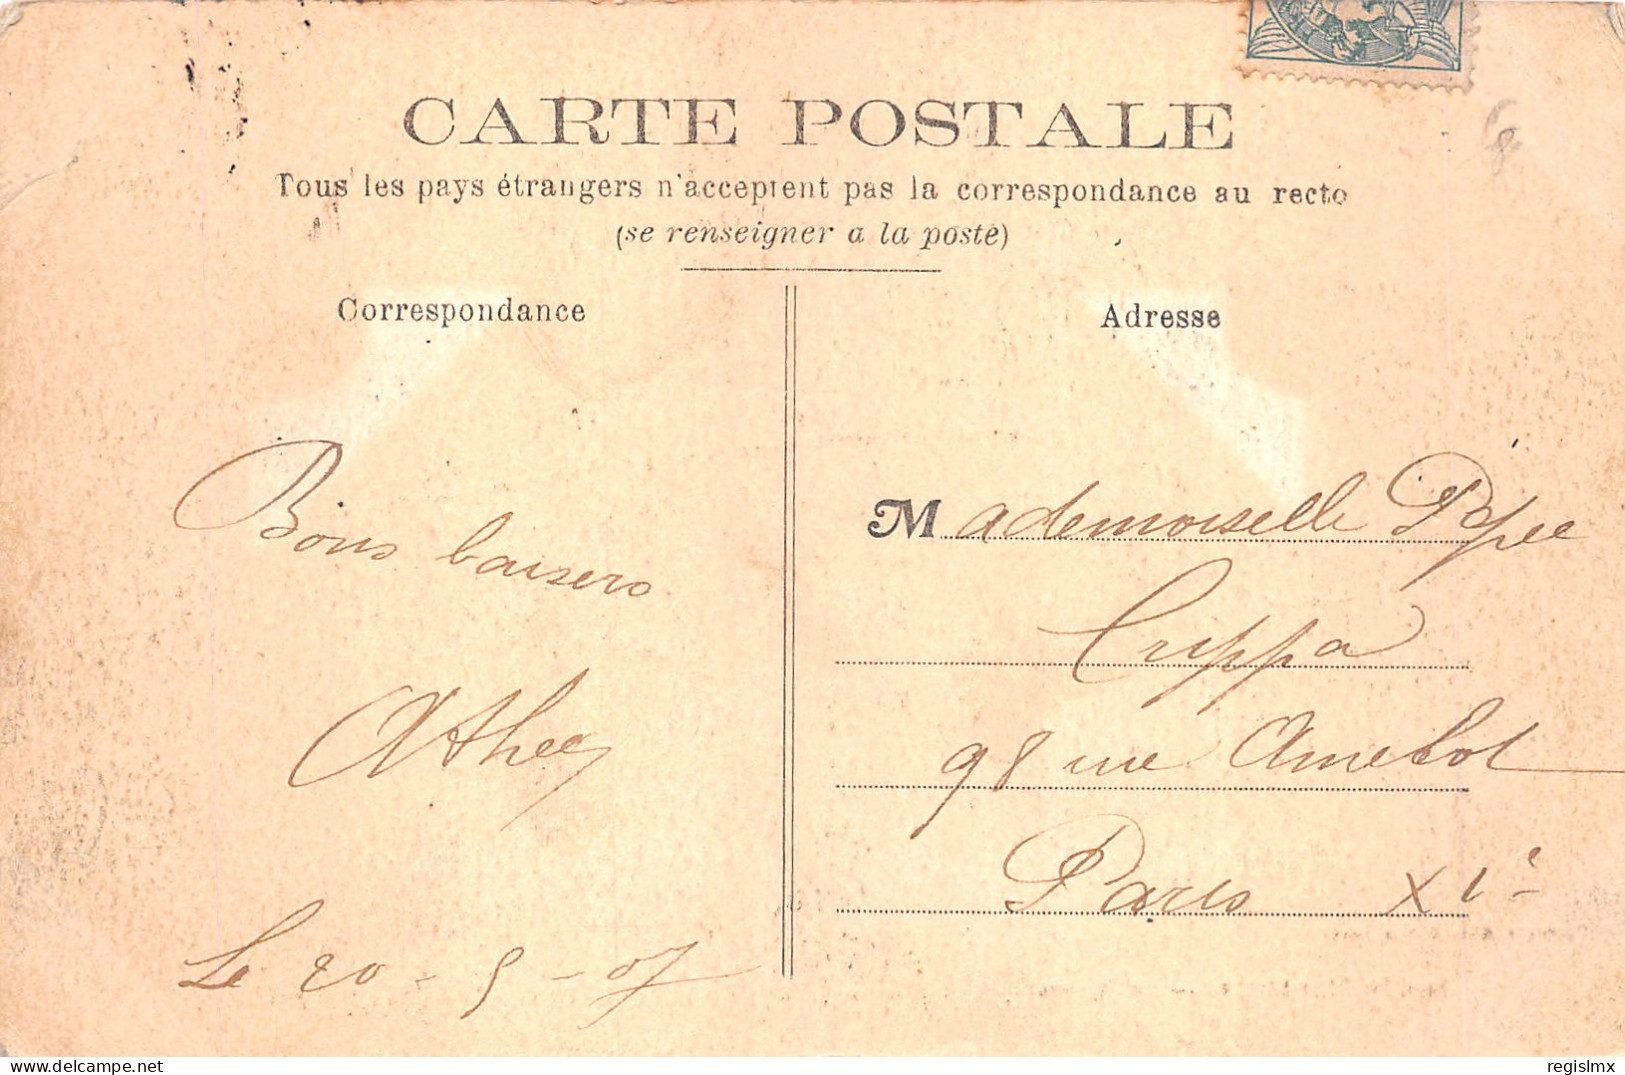 CARTE POSTALE
Tous les pays étrangers n'acceptent pas la correspondance au recto
(se renseigner a la poste)
Correspondance
Adresse
Bons baisers
Le 20 - 5 - 07
Mademoiselle
Cuppa
98 rue Amelot
Paris XIe
delcampe.net
regislmx